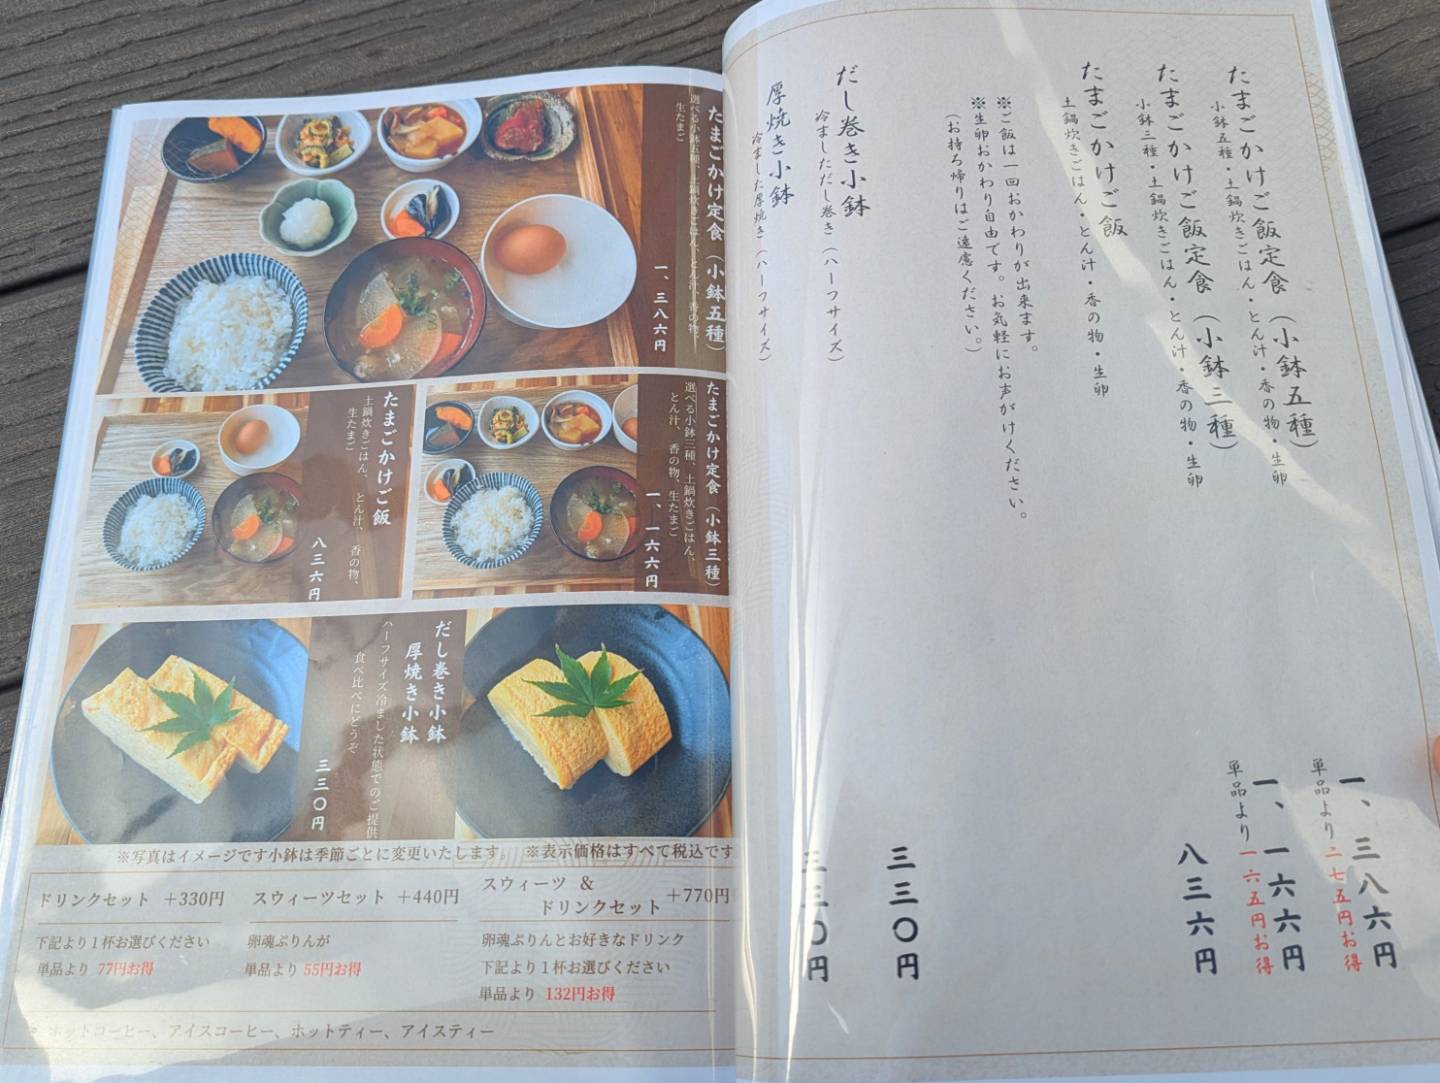 たまごかけご飯定食（小鉢五種）
小鉢五種・土鍋炊きごはん・とん汁・香の物・生卵
一、三八六円
単品より二七五円お得
たまごかけご飯定食（小鉢三種）
小鉢三種・土鍋炊きごはん・とん汁・香の物・生卵
一、一六六円
単品より一六五円お得
たまごかけご飯
土鍋炊きごはん・とん汁・香の物・生卵
八三六円
※ご飯は一回おかわりが出来ます。
※生卵おかわり自由です。お気軽にお声がけください。
（お持ち帰りはご遠慮ください。）
だし巻き小鉢
冷ましただし巻き（ハーフサイズ）
三三〇円
厚焼き小鉢
冷ました厚焼き（ハーフサイズ）
三三〇円
たまごかけ定食（小鉢五種）
選べる小鉢五種、土鍋炊きごはん、とん汁、香の物、
生たまご
一、三八六円
たまごかけ定食（小鉢三種）
選べる小鉢三種、土鍋炊きごはん、
とん汁、香の物、生たまご
一、一六六円
たまごかけご飯
土鍋炊きごはん、とん汁、香の物、
生たまご
八三六円
だし巻き小鉢
厚焼き小鉢
ハーフサイズ冷ました状態でのご提供
食べ比べにどうぞ
三三〇円
※写真はイメージです小鉢は季節ごとに変更いたします。 ※表示価格はすべて税込です
ドリンクセット ＋330円
下記より１杯お選びください
単品より 77円お得
スウィーツセット ＋440円
卵魂ぷりんが
単品より 55円お得
スウィーツ ＆
ドリンクセット ＋770円
卵魂ぷりんとお好きなドリンク
下記より１杯お選びください
単品より 132円お得
ホットコーヒー、アイスコーヒー、ホットティー、アイスティー